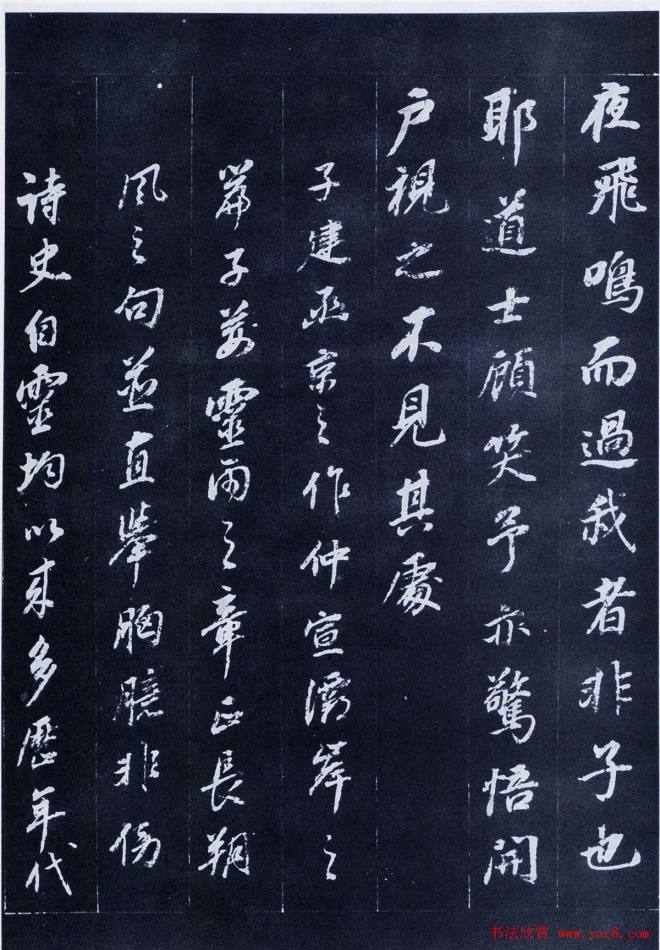 夜飛鳴而過我者非子也
耶道士顧笑予亦驚悟開
户視之不見其處
子建函京之作仲宣灞岸之
篇子荆零雨之章正長朔
風之句並直舉胸臆非傍
詩史自靈均以来多歷年代
书法欣赏 www.yac8.com